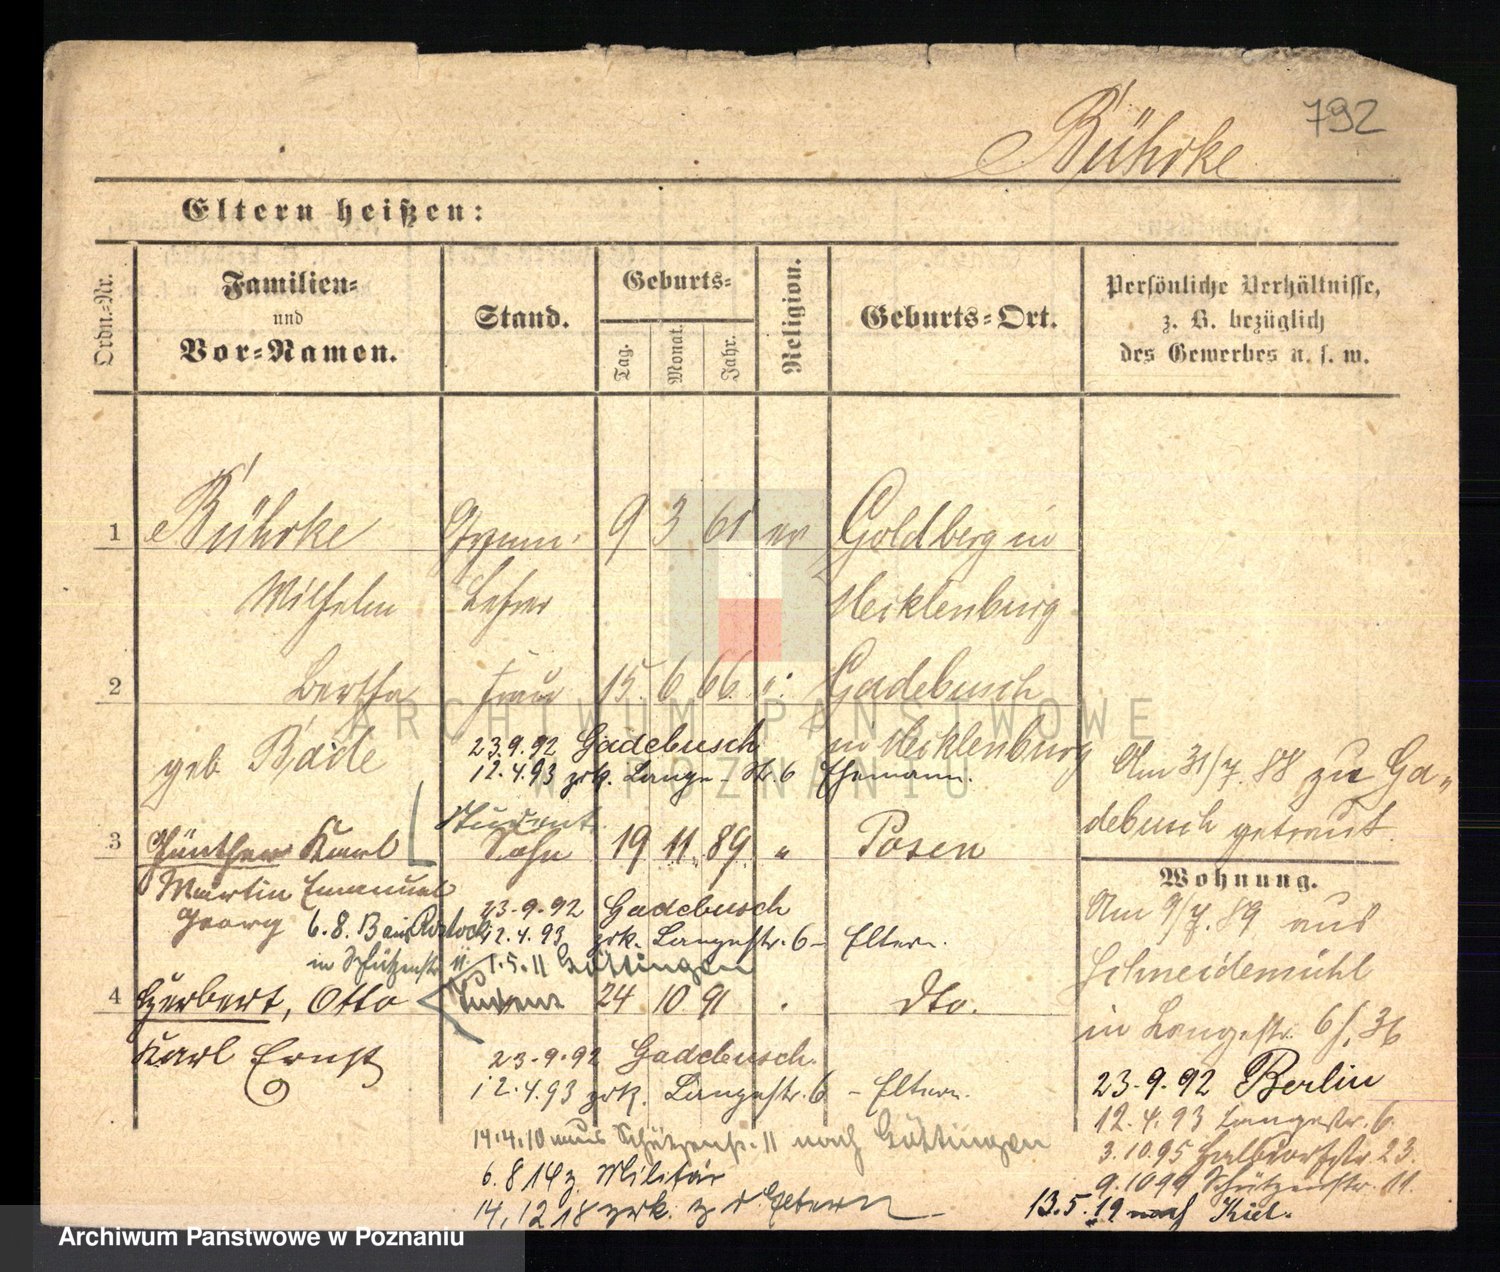 792
Bührke
Eltern heißen:
Ordn.-Nr.
Familien-
und
Vor-Namen.
Stand.
Geburts-
Tag.
Monat.
Jahr.
Religion.
Geburts-Ort.
Persönliche Verhältnisse,
z. B. bezüglich
des Gewerbes u. s. w.
1 Bührke Gymn. 9 3 61 ev Goldberg in
Wilhelm Lehrer Mecklenburg
2 Bertha Frau 15. 6 66. " Gadebusch
geb Bade in Mecklenburg
23.9.92 Gadebusch
12.4.93 zrk. Lange-Str. 6 Ehemann.
Am 31/7. 88 zu Ga-
debusch getraut.
Student
3 Günther Karl Sohn 19 11. 89. " Posen
Martin Emanuel
Georg
23-9-92 Gadebusch
12.4.93 zrk. Langestr. 6 - Eltern.
6. 8. 13 aus Rostock
in Schützenstr 11
1.5.11 Göttingen
4 Herbert, Otto Student 24 10. 91 . dto.
Karl Ernst
23-9-92 Gadebusch.
12.4.93 zrk. Langestr. 6 - Eltern.
14.4.10 aus Schützenstr. 11 nach Göttingen
6. 8 14 z Militär
14. 12 18 zurk. z d Eltern
Wohnung.
Am 9/7. 89 aus
Schneidemühl
in Langestr. 6 f. 36
23-9.92 Berlin
12.4.93 Langestr. 6.
3.10.95 Halbdorfstr. 23.
9.10 99 Schützenstr. 11.
13.5.19 nach Kiel.
ARCHIWUM PAŃSTWOWE
W POZNANIU
Archiwum Państwowe w Poznaniu